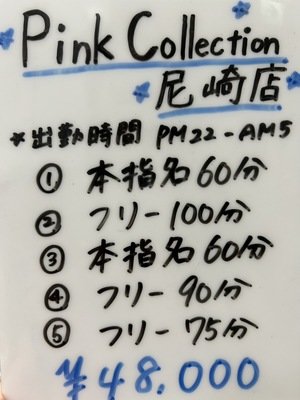 Pink Collection
尼崎店
*出勤時間 PM22-AM5
① 本指名60分
② フリー100分
③ 本指名60分
④ フリー90分
⑤ フリー75分
¥48,000